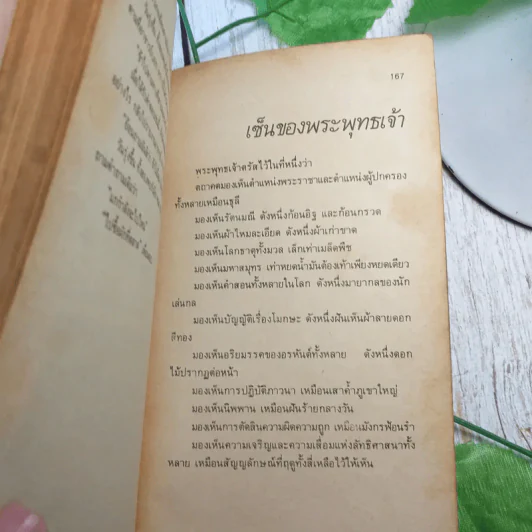 167
เซ็นของพระพุทธเจ้า
พระพุทธเจ้าตรัสไว้ในที่หนึ่งว่า
ตถาคตมองเห็นตำแหน่งพระราชาและตำแหน่งผู้ปกครอง
ทั้งหลายเหมือนธุลี
มองเห็นรัตนมณี ดังหนึ่งก้อนอิฐ และก้อนกรวด
มองเห็นผ้าไหมละเอียด ดังหนึ่งผ้าเก่าขาด
มองเห็นโลกธาตุทั้งมวล เล็กเท่าเมล็ดพืช
มองเห็นมหาสมุทร เท่าหยดน้ำมันต้องเท้าเพียงหยดเดียว
มองเห็นคำสอนทั้งหลายในโลก ดังหนึ่งมายากลของนัก
เล่นกล
มองเห็นบัญญัติเรื่องโมกษะ ดังหนึ่งฝันเห็นผ้าลายดอก
สีทอง
มองเห็นอริยมรรคของอรหันต์ทั้งหลาย ดังหนึ่งดอก
ไม้ปรากฏต่อหน้า
มองเห็นการปฏิบัติภาวนา เหมือนเสาค้ำภูเขาใหญ่
มองเห็นนิพพาน เหมือนฝันร้ายกลางวัน
มองเห็นการตัดสินความผิดความถูก เหมือนมังกรฟ้อนรำ
มองเห็นความเจริญและความเสื่อมแห่งลัทธิศาสนาทั้ง
หลาย เหมือนสัญญลักษณ์ที่ฤดูทั้งสี่เหลือไว้ให้เห็น